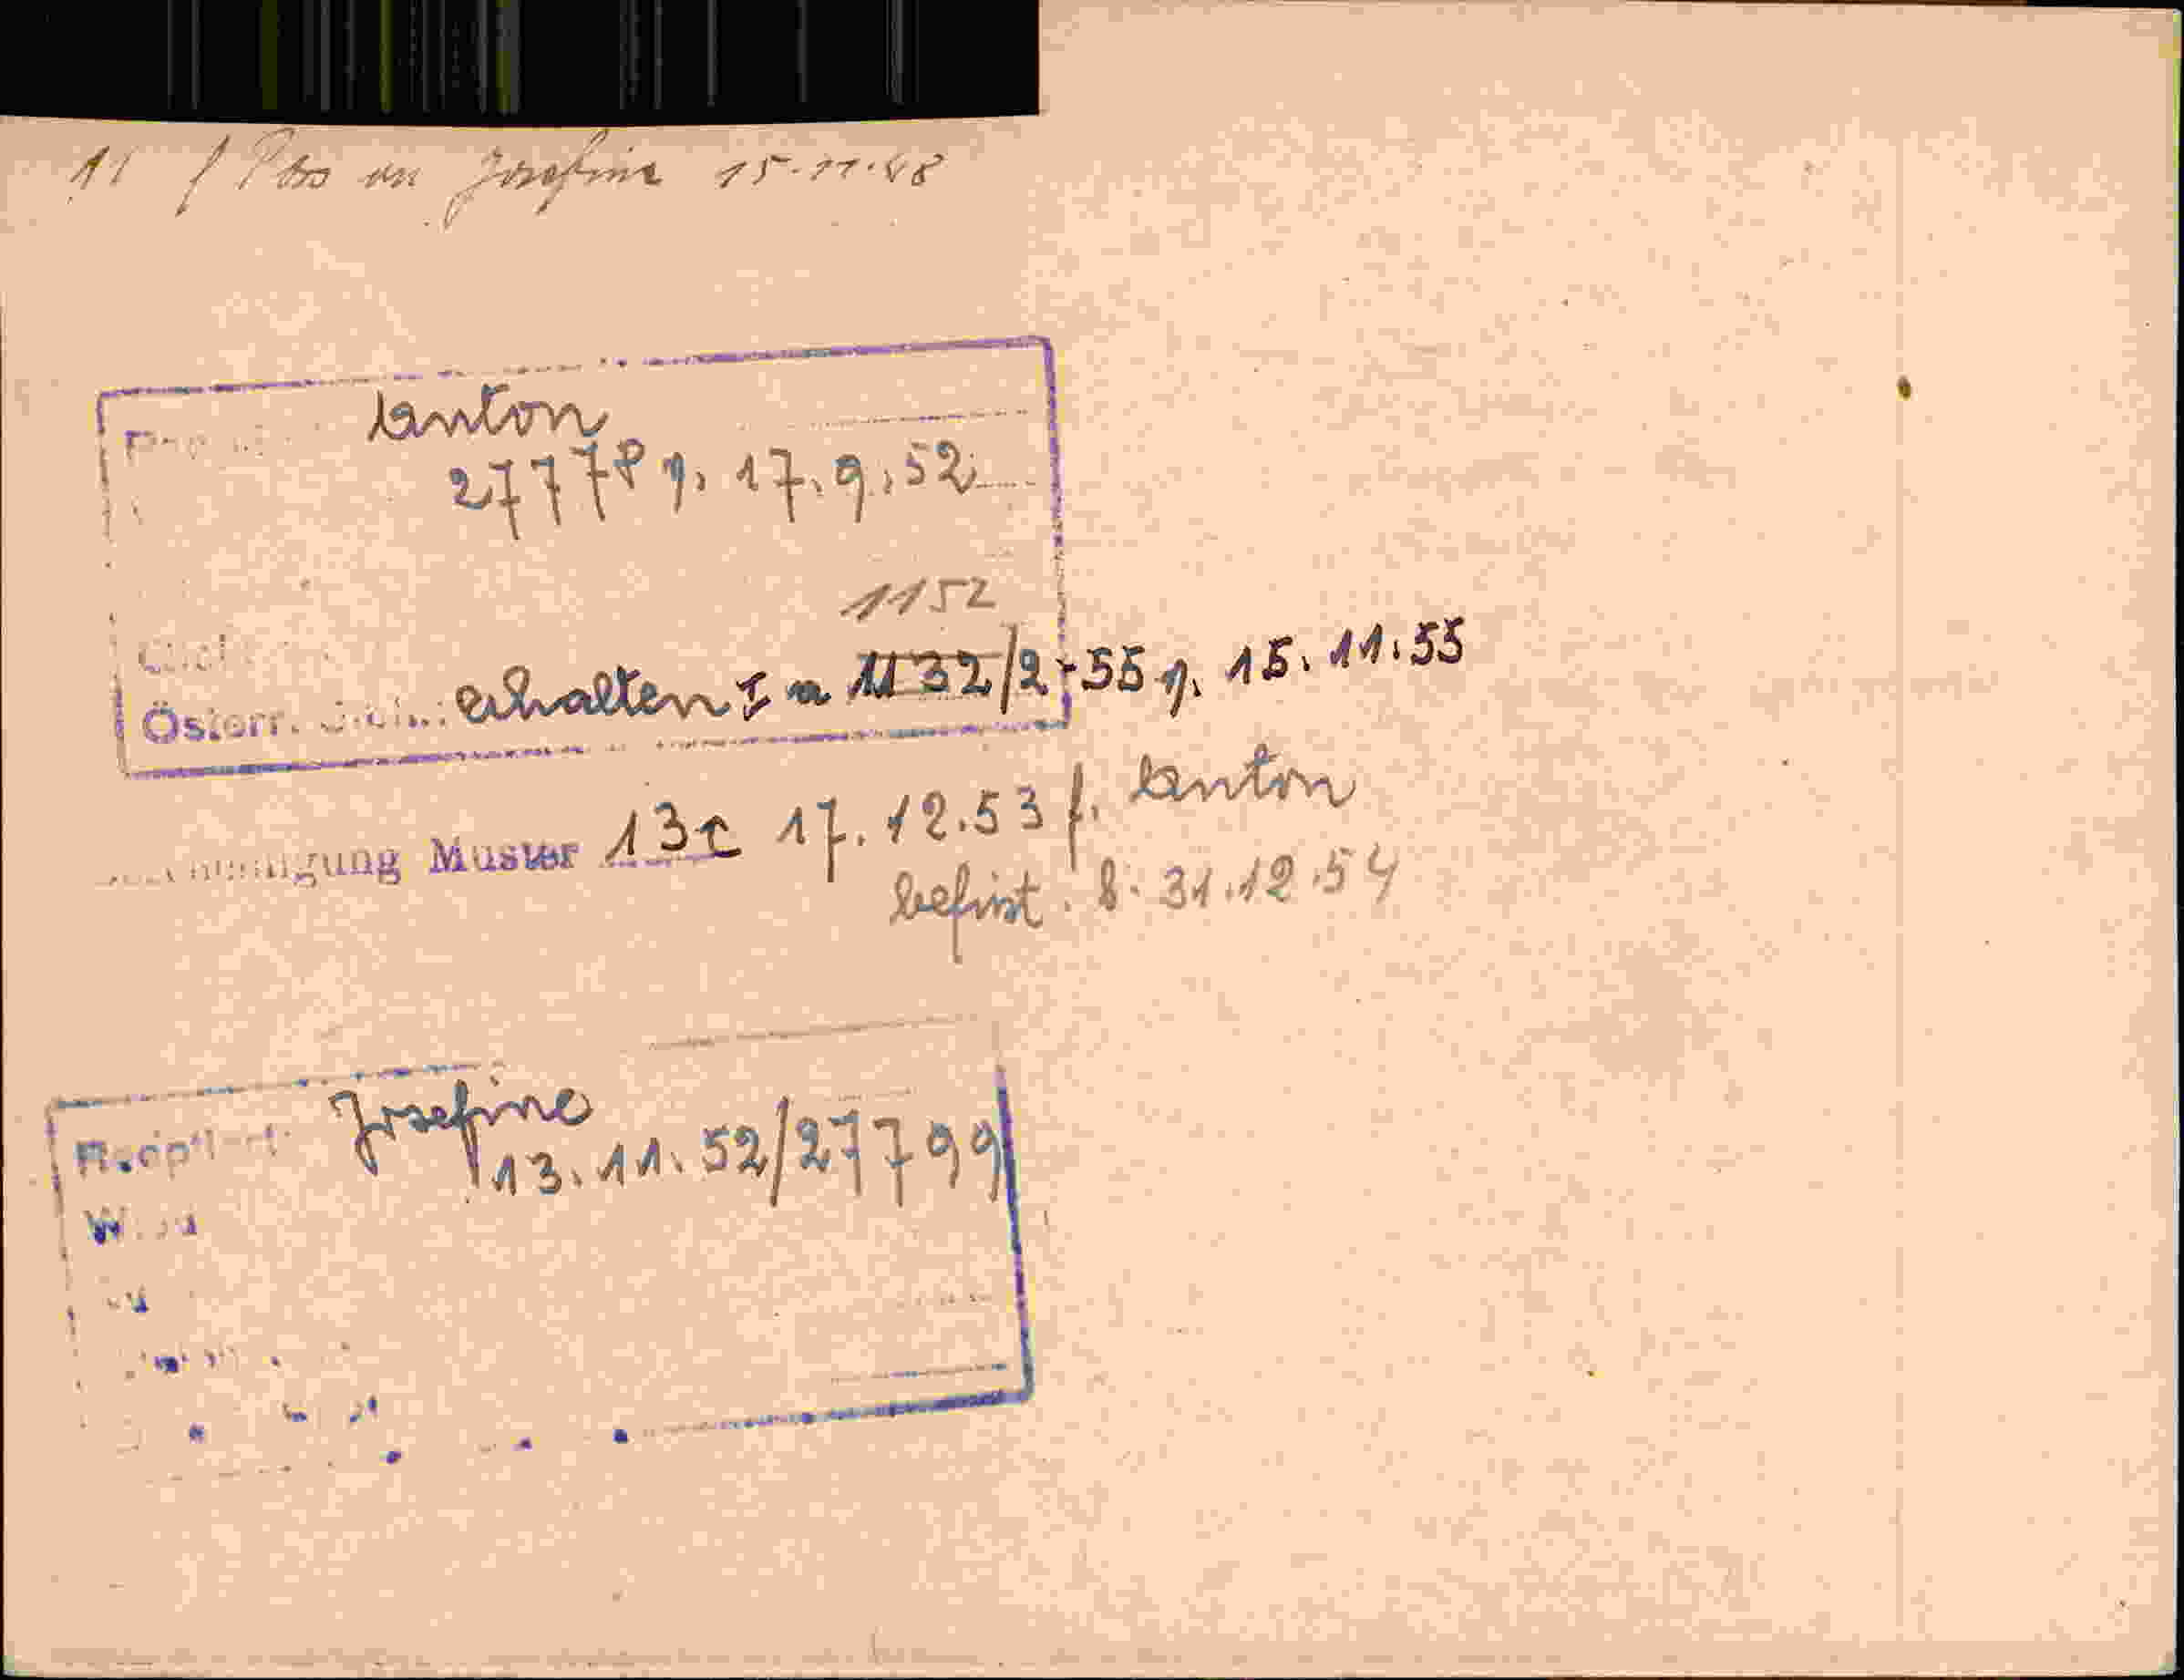 11 f Pass an Josefine 15.11.48
Anton
27778 g. 17.9.52
1152
Österr. erhalten 1132/2-55 g. 15.11.55
Muster 13c 17.12.53 f. Anton
befrist. b. 31.12.54
Josefine
13.11.52/27799